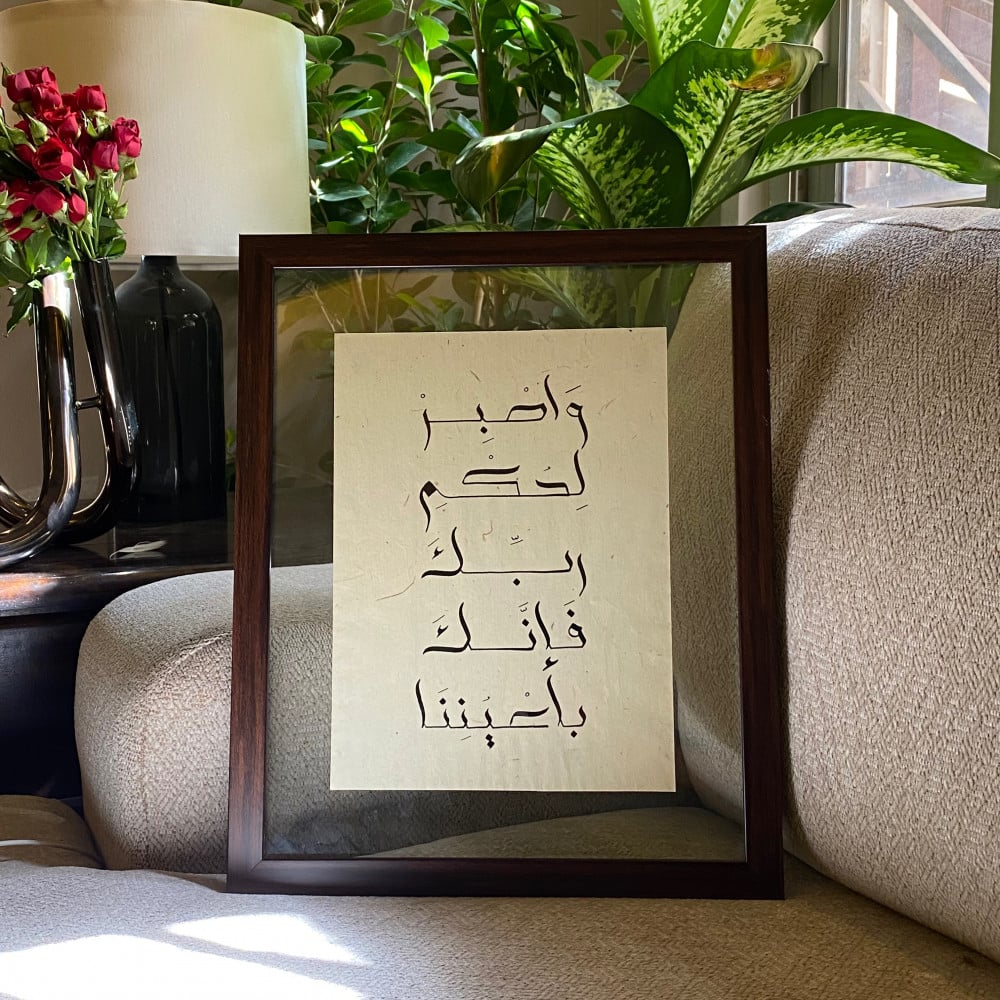 وَاصْبِرْ
لِحُكْمِ
رَبِّكَ
فَإِنَّكَ
بِأَعْيُنِنَا